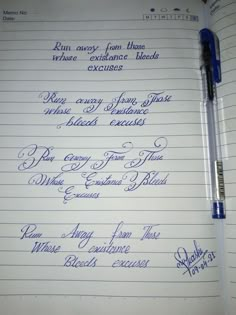 Memo No.
Date
M T W T F S S
Run away from those
whose existance bleeds
excuses
Run away from Those
whose existance
bleeds excuses
Run away From Those
Whose Existance Bleeds
Excuses
Run Away from Those
Whose existence
Bleeds excuses